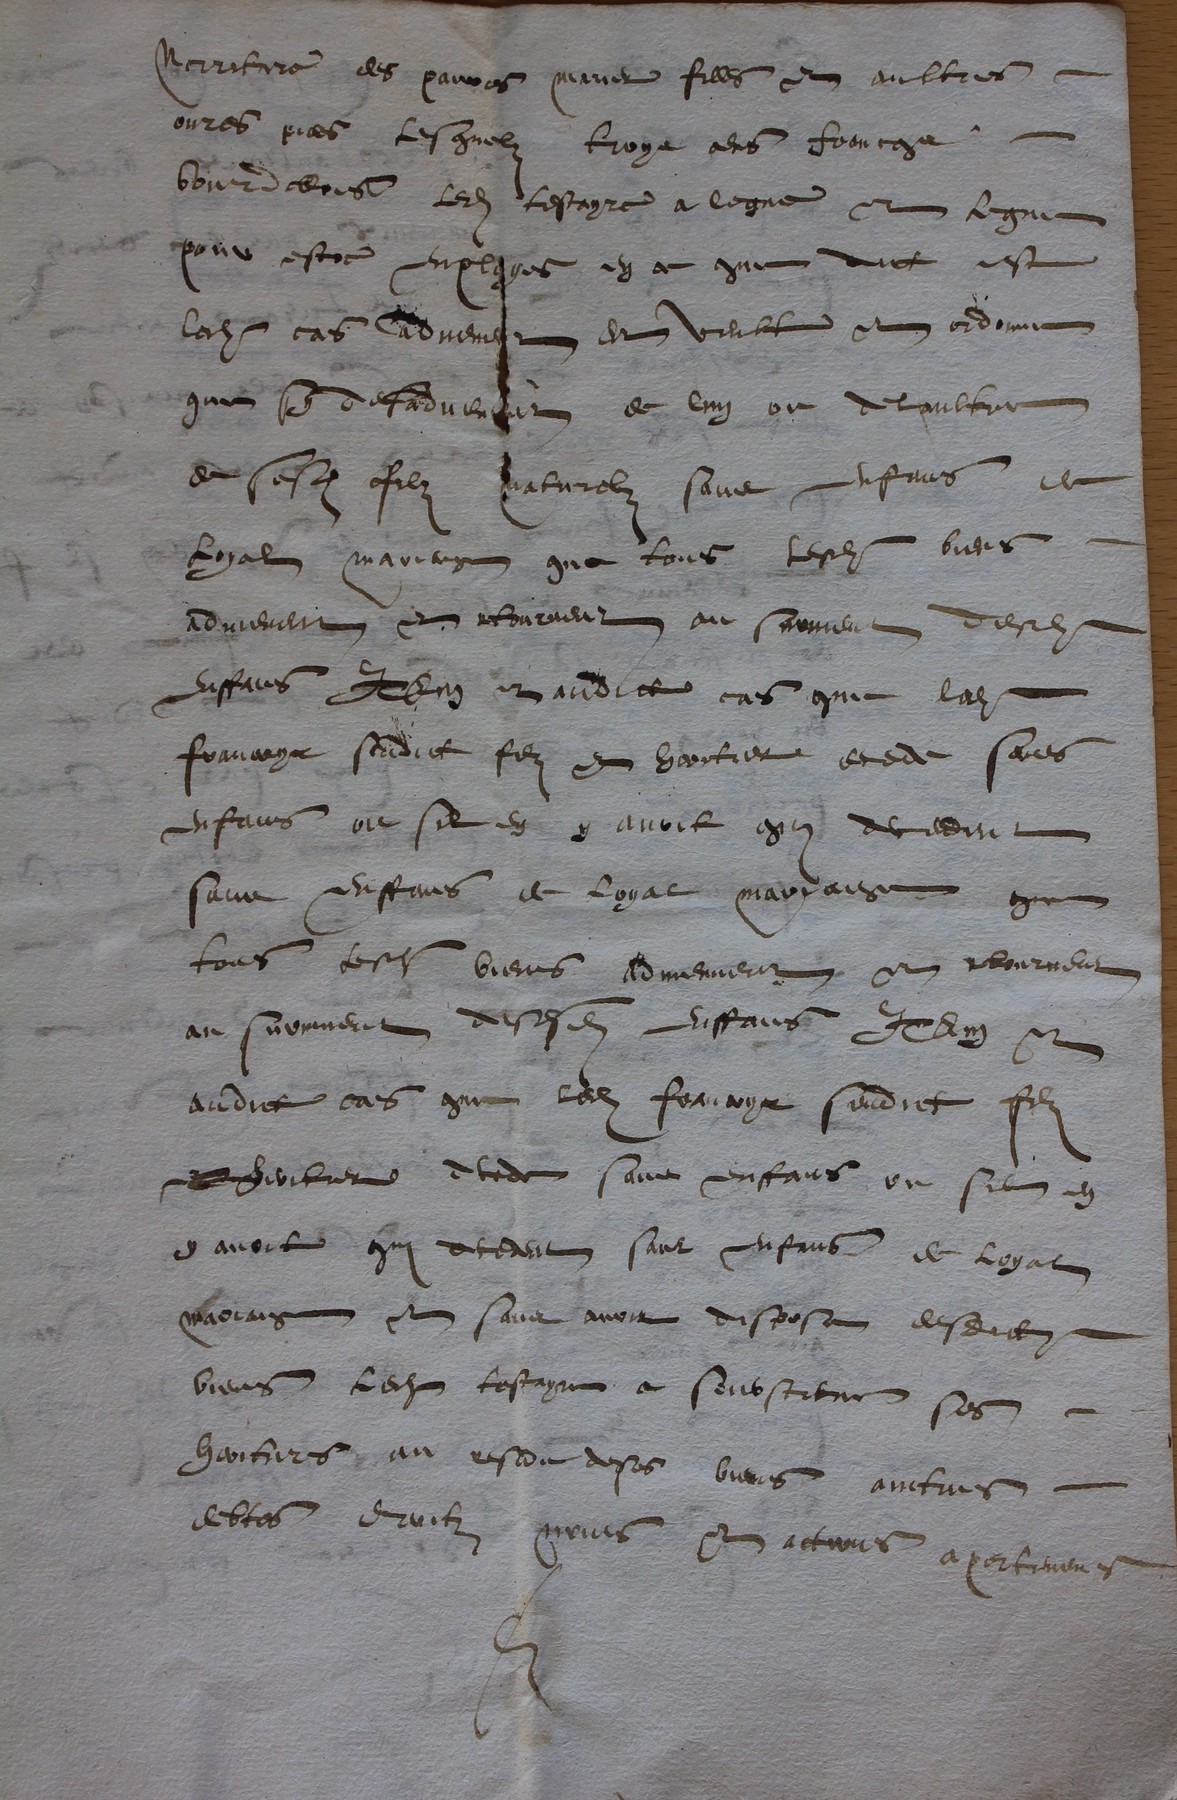 norriture des pauvres marier filles et aultres
ouvres pies lesquelz troys cens francqz
bourdellois led testayre a legue et legue
pour estre employes en ce que dict est
led cas advenent et veult et ordonne
que deffadvenent de luy ou de laultre
de sesd filz naturelz sans enffans de
loyal mariage que tous lesd biens
advienent et retournent au survivent desd
enffans Item et audict cas que led
francoys sendict filz et heretier decede sans
enffans ou sil en y avoit quy decedent
sans enffans de loyal mariaige que
tous lesd biens advienent et retournent
au survivent desd enffans Item et
audict cas que led francoys sendict filz
et heritier decede sans enffans ou sil en
y avoit quy decedent sans enffans de loyal
mariaige et sans avoir dispose desdictz
biens led testayre a soubstitue ses
heretiers au reste deses biens aultres
debtes droictz noms et actions apertenens